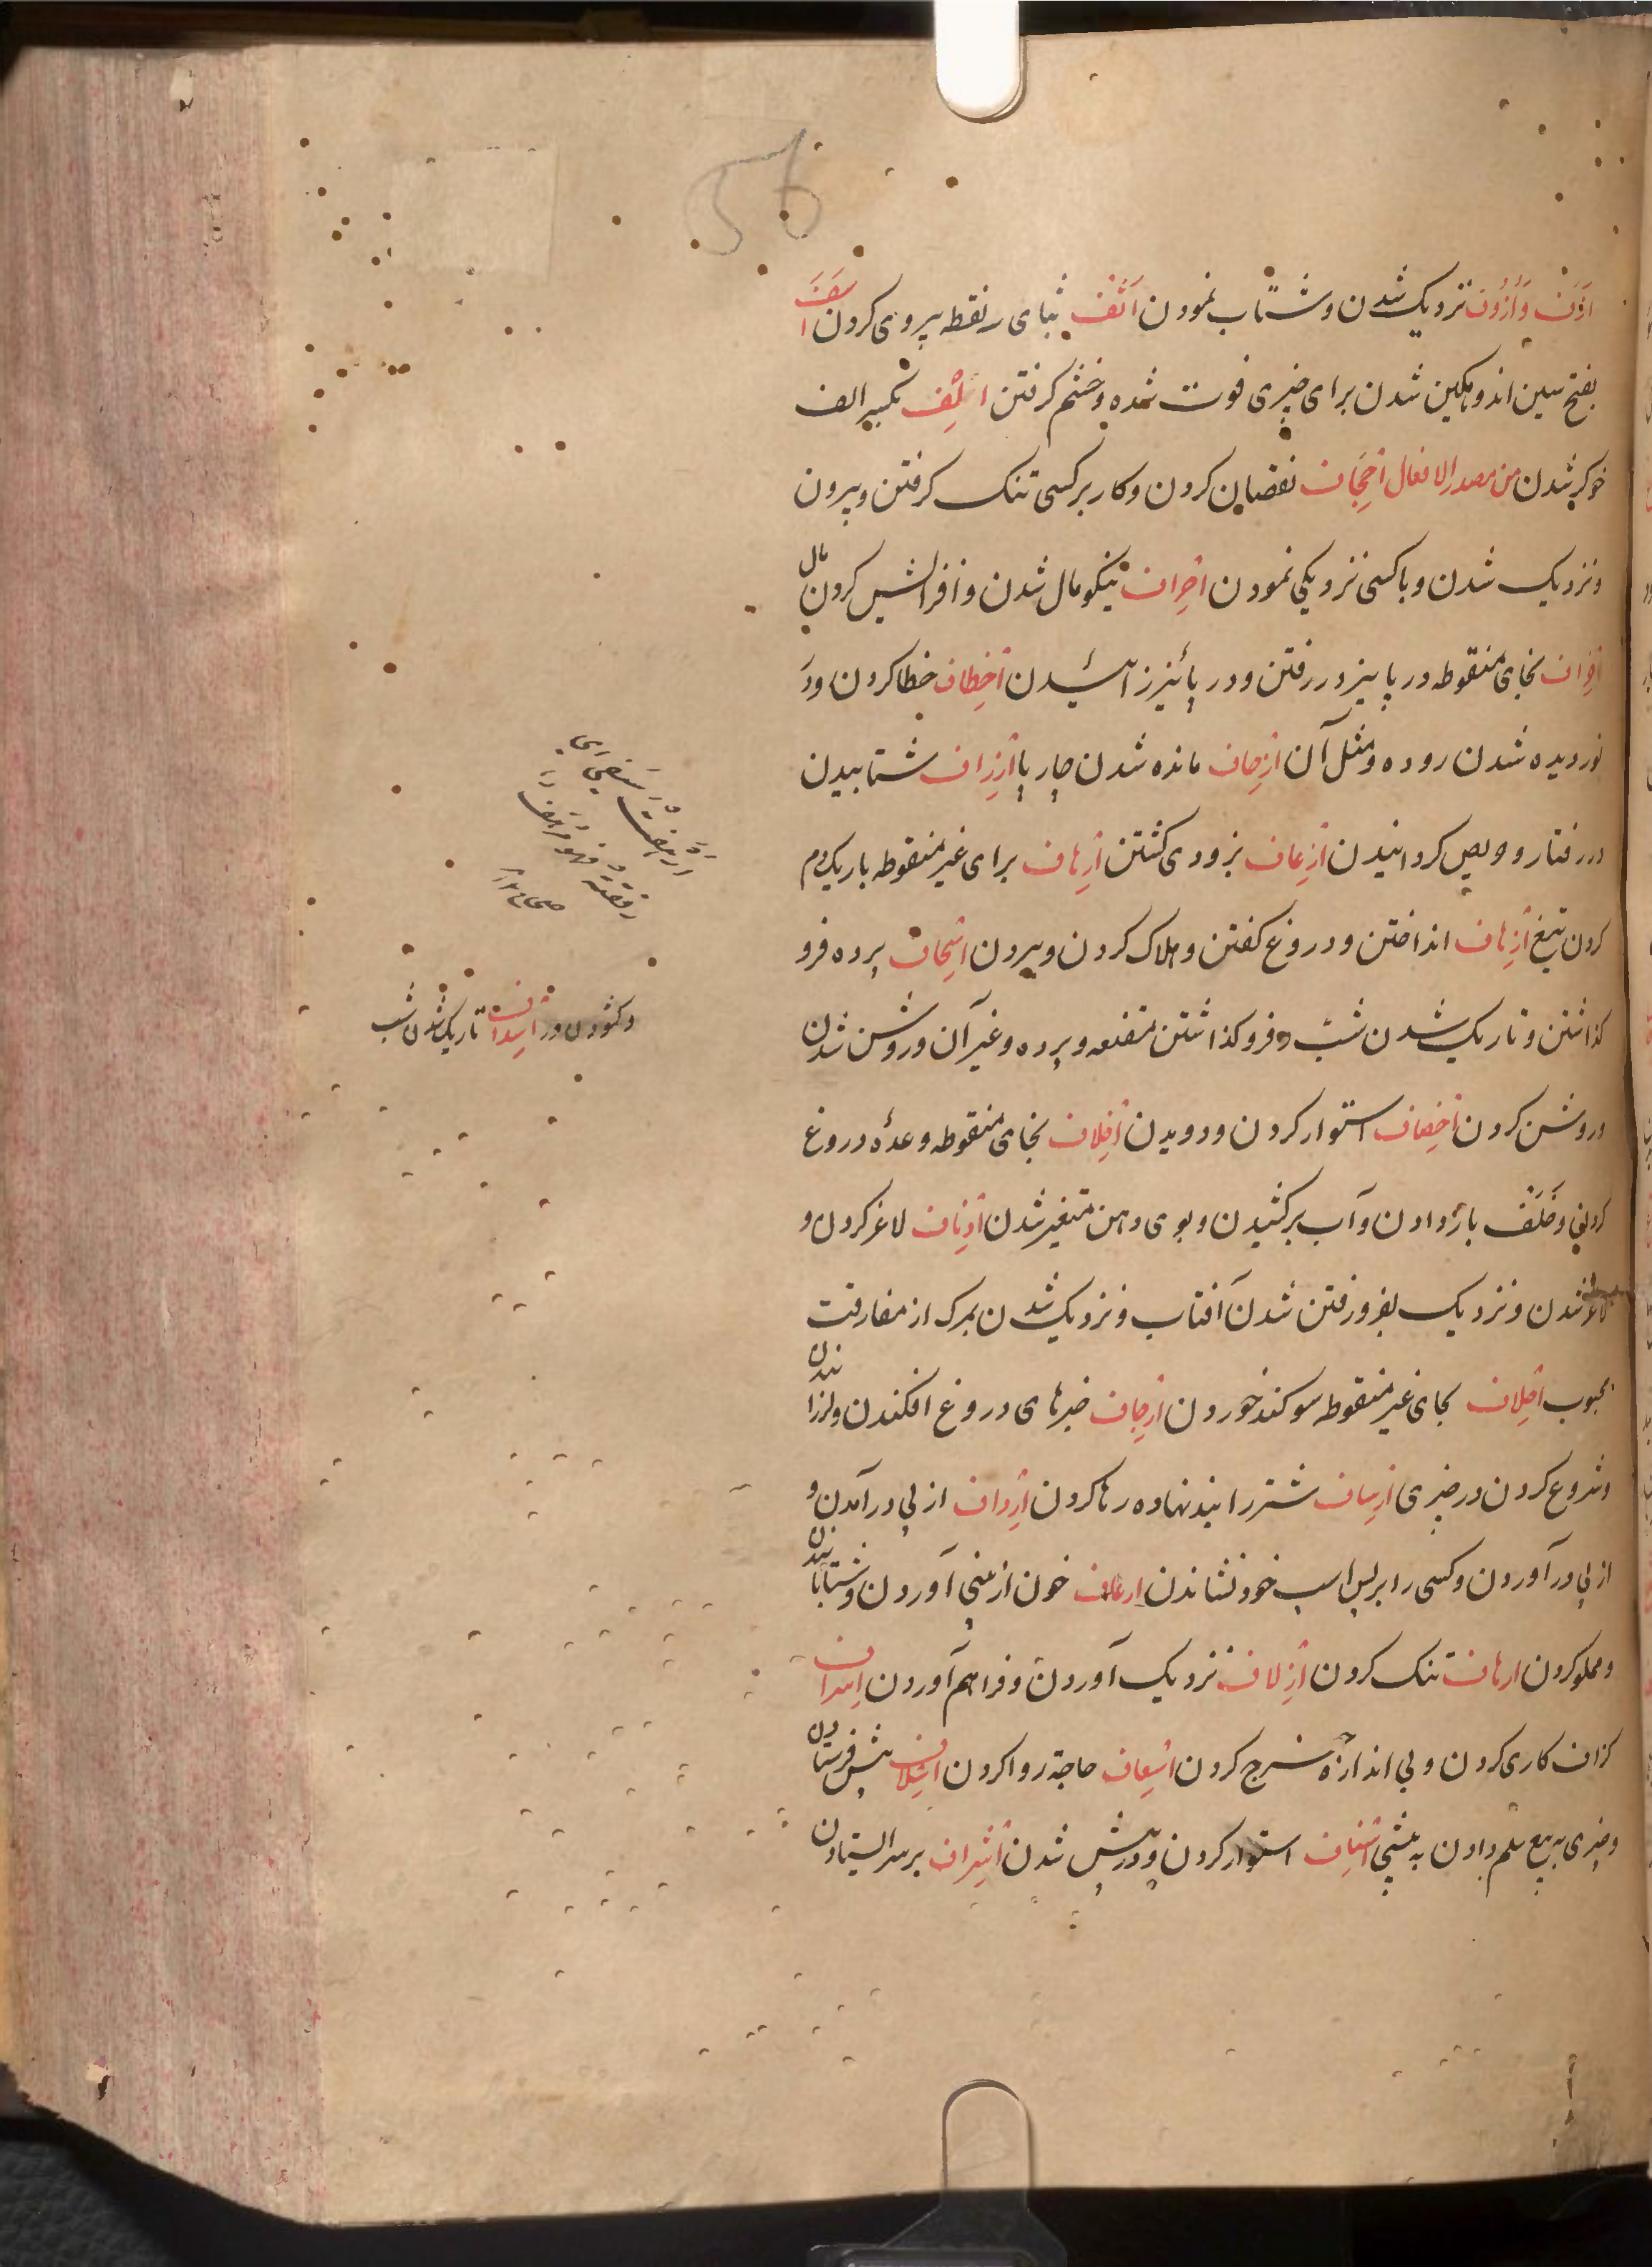 56
اَزَف وَ اُزُوف نزدیک شدن و شتاب نمودن اَثْف بثای سه نقطه پیروی کردن اَسَف
بفتح سین اندوهکین شدن برای چیزی فوت شده و خشم کرفتن اِلف بکسر الف
خوکر شدن من مصدر الافعال اِجحاف نقصان کردن و کار بر کسی تنک کرفتن و بیرون
و نزدیک شدن و با کسی نزدیکی نمودن اِحراف نیکو مال شدن و افزایش کردن مال
اِخراف بخای منقوطه در پاییز در رفتن و در پائیز زائیدن اِخطاف خطا کردن و در
نوردیده شدن روده و مثل آن اِزحاف مانده شدن چارپا اِزراف شتابیدن
در رفتار و حریص کردانیدن اِزعاف بزودی کشتن اِرهاف برای غیر منقوطه باریک دم
کردن تیغ اِزهاف انداختن و دروغ کفتن و هلاک کردن و بردن اِسجاف پرده فرو
کذاشتن و تاریک شدن شب و فرو کذاشتن مقنعه و پرده و غیر آن و روشن شدن
و روشن کردن اِخصاف استوار کردن و دویدن اِخلاف بخای منقوطه وعدۀ دروغ
کردن و خَلَف باز دادن و آب برکشیدن و بوی دهن متغیر شدن اِدناف لاغر کردن و
لاغر شدن و نزدیک بفرو رفتن شدن آفتاب و نزدیک شدن بمرک از مفارقت
محبوب اِحلاف بحای غیر منقوطه سوکند خوردن اِرجاف خبرهای دروغ افکندن و لرزاندن
و شروع کردن در چیزی اِرساف شتر را بند نهاده رها کردن اِرداف از پی در آمدن و
از پی در آوردن و کسی را بر پس اسپ خود نشاندن اِرعاف خون از بینی آوردن و شتابانیدن
و مملو کردن ارهاف تنک کردن اِزلاف نزدیک آوردن و فراهم آوردن اِسراف
کزاف کاری کردن و بی اندازه خرج کردن اِسعاف حاجة روا کردن اِسلاف پیش فرستادن
و چیزی به بیع سلم دادن به پیشی اِسناف استوار کردن و در پیش شدن اِشراف بر سر ایستادن
و کشودن در اِسداف تاریک شدن شب
صحاح